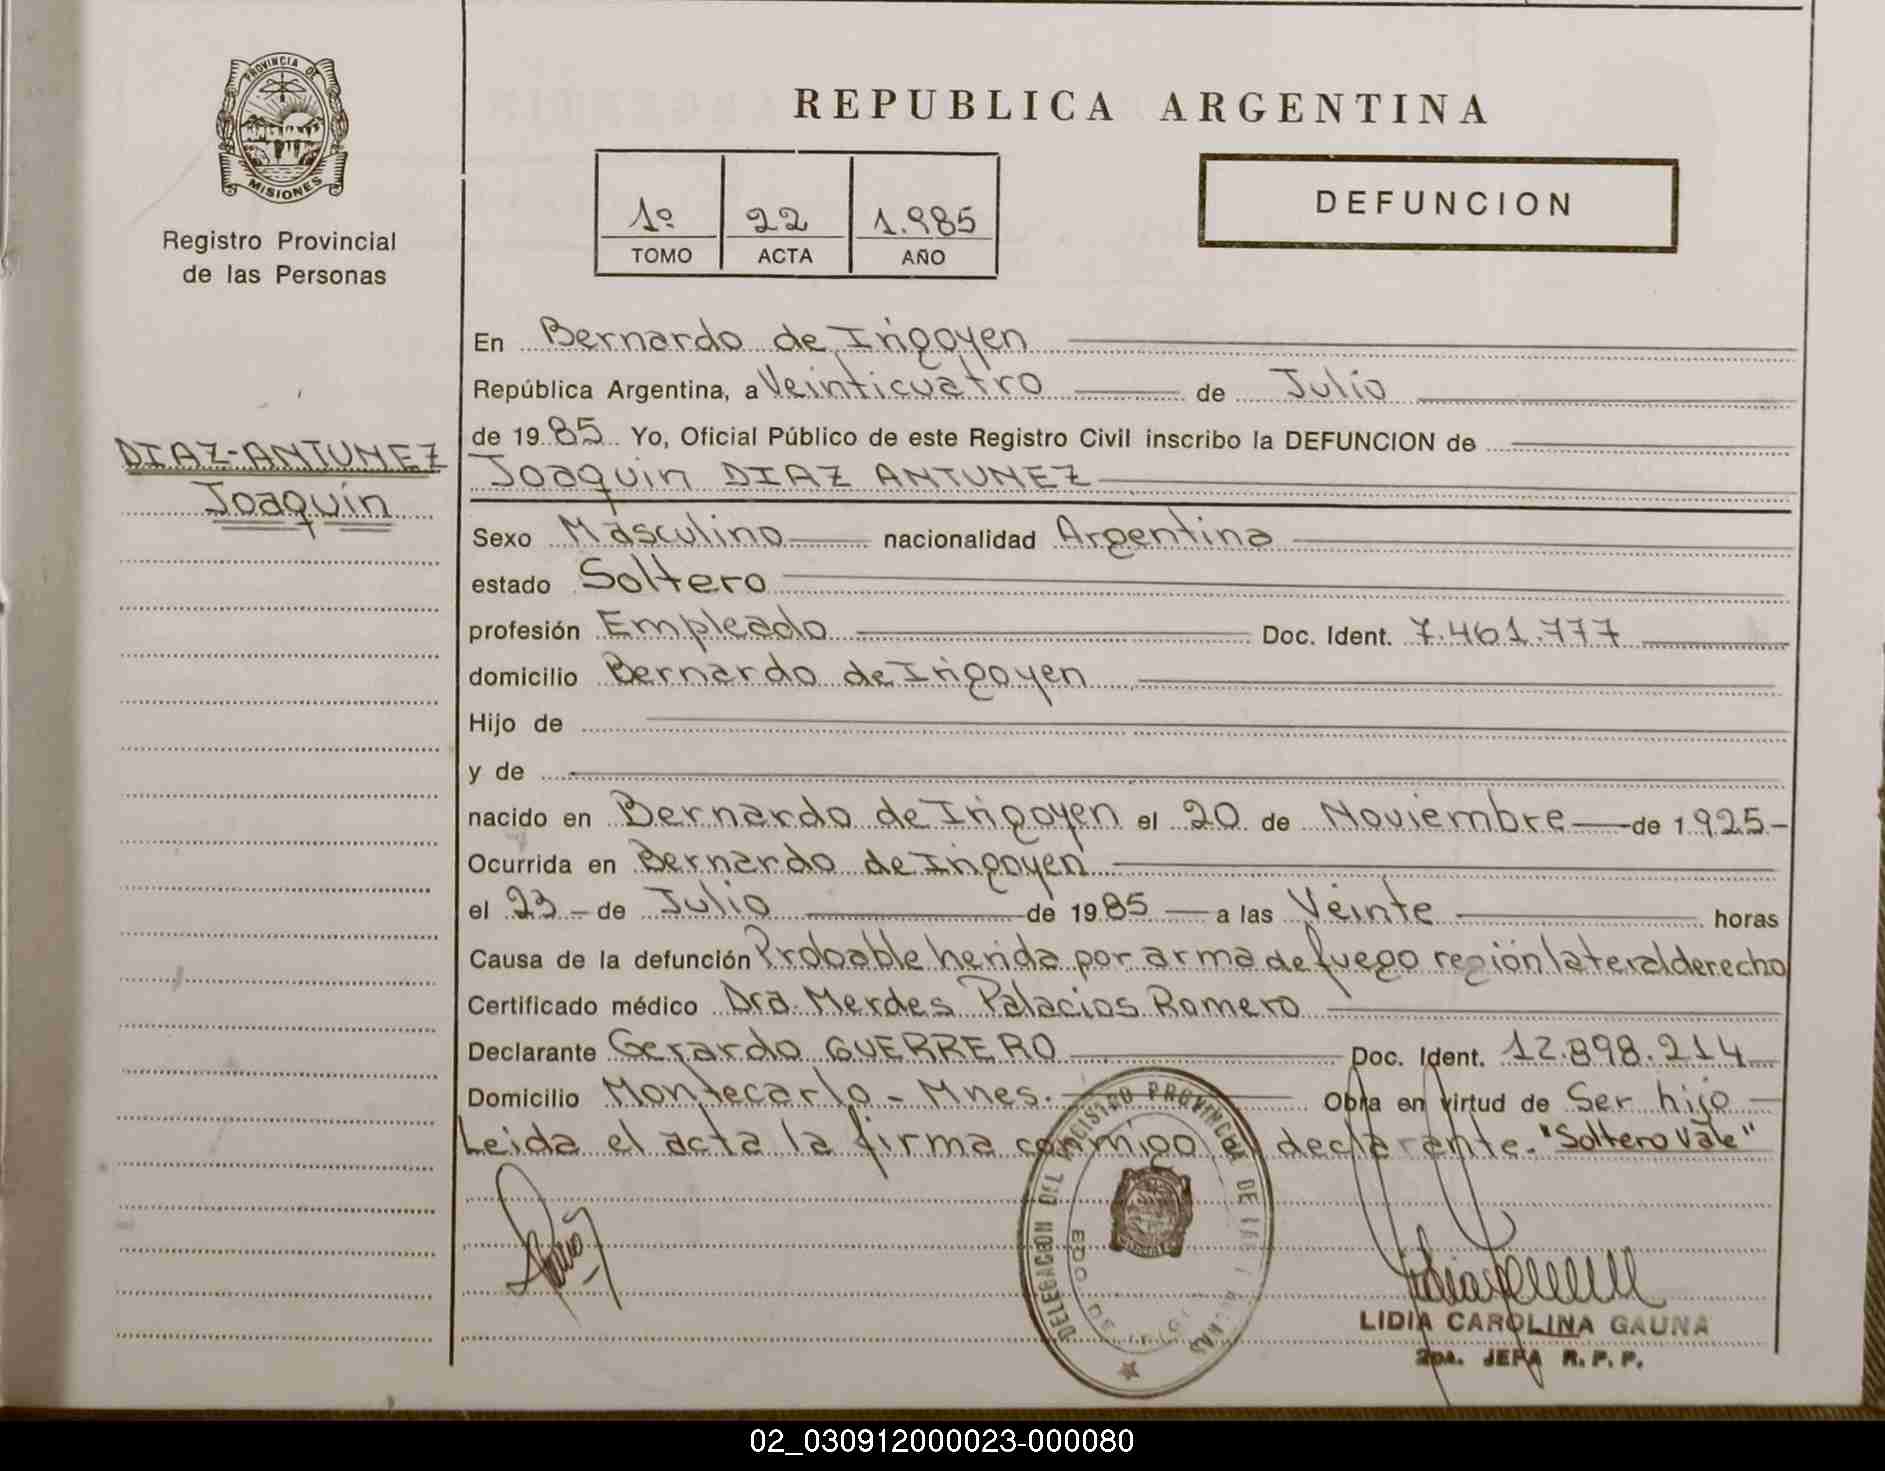 PROVINCIA DE
MISIONES
Registro Provincial
de las Personas
DIAZ-ANTUNEZ
Joaquín
REPUBLICA ARGENTINA
1º 22 1.985
TOMO ACTA AÑO
DEFUNCION
En Bernardo de Irigoyen
República Argentina, a Veinticuatro de Julio
de 19 85 Yo, Oficial Público de este Registro Civil inscribo la DEFUNCION de
Joaquin DIAZ ANTUNEZ
Sexo Masculino nacionalidad Argentina
estado Soltero
profesión Empleado Doc. Ident. 7.461.777
domicilio Bernardo de Irigoyen
Hijo de
y de
nacido en Bernardo de Irigoyen el 20 de Noviembre de 1925-
Ocurrida en Bernardo de Irigoyen
el 23 - de Julio de 19 85 a las Veinte horas
Causa de la defunción Probable herida por arma de fuego región lateral derecho
Certificado médico Dra. Merdes Palacios Romero
Declarante Gerardo GUERRERO Doc. Ident. 12.898.214
Domicilio Montecarlo - Mnes. Obra en virtud de Ser hijo
Leida el acta la firma conmigo el declarante. "Soltero Vale"
DELEGACION DEL REGISTRO PROVINCIAL DE LAS
LIDIA CAROLINA GAUNA
2da. JEFA R. P. P.
02_030912000023-000080